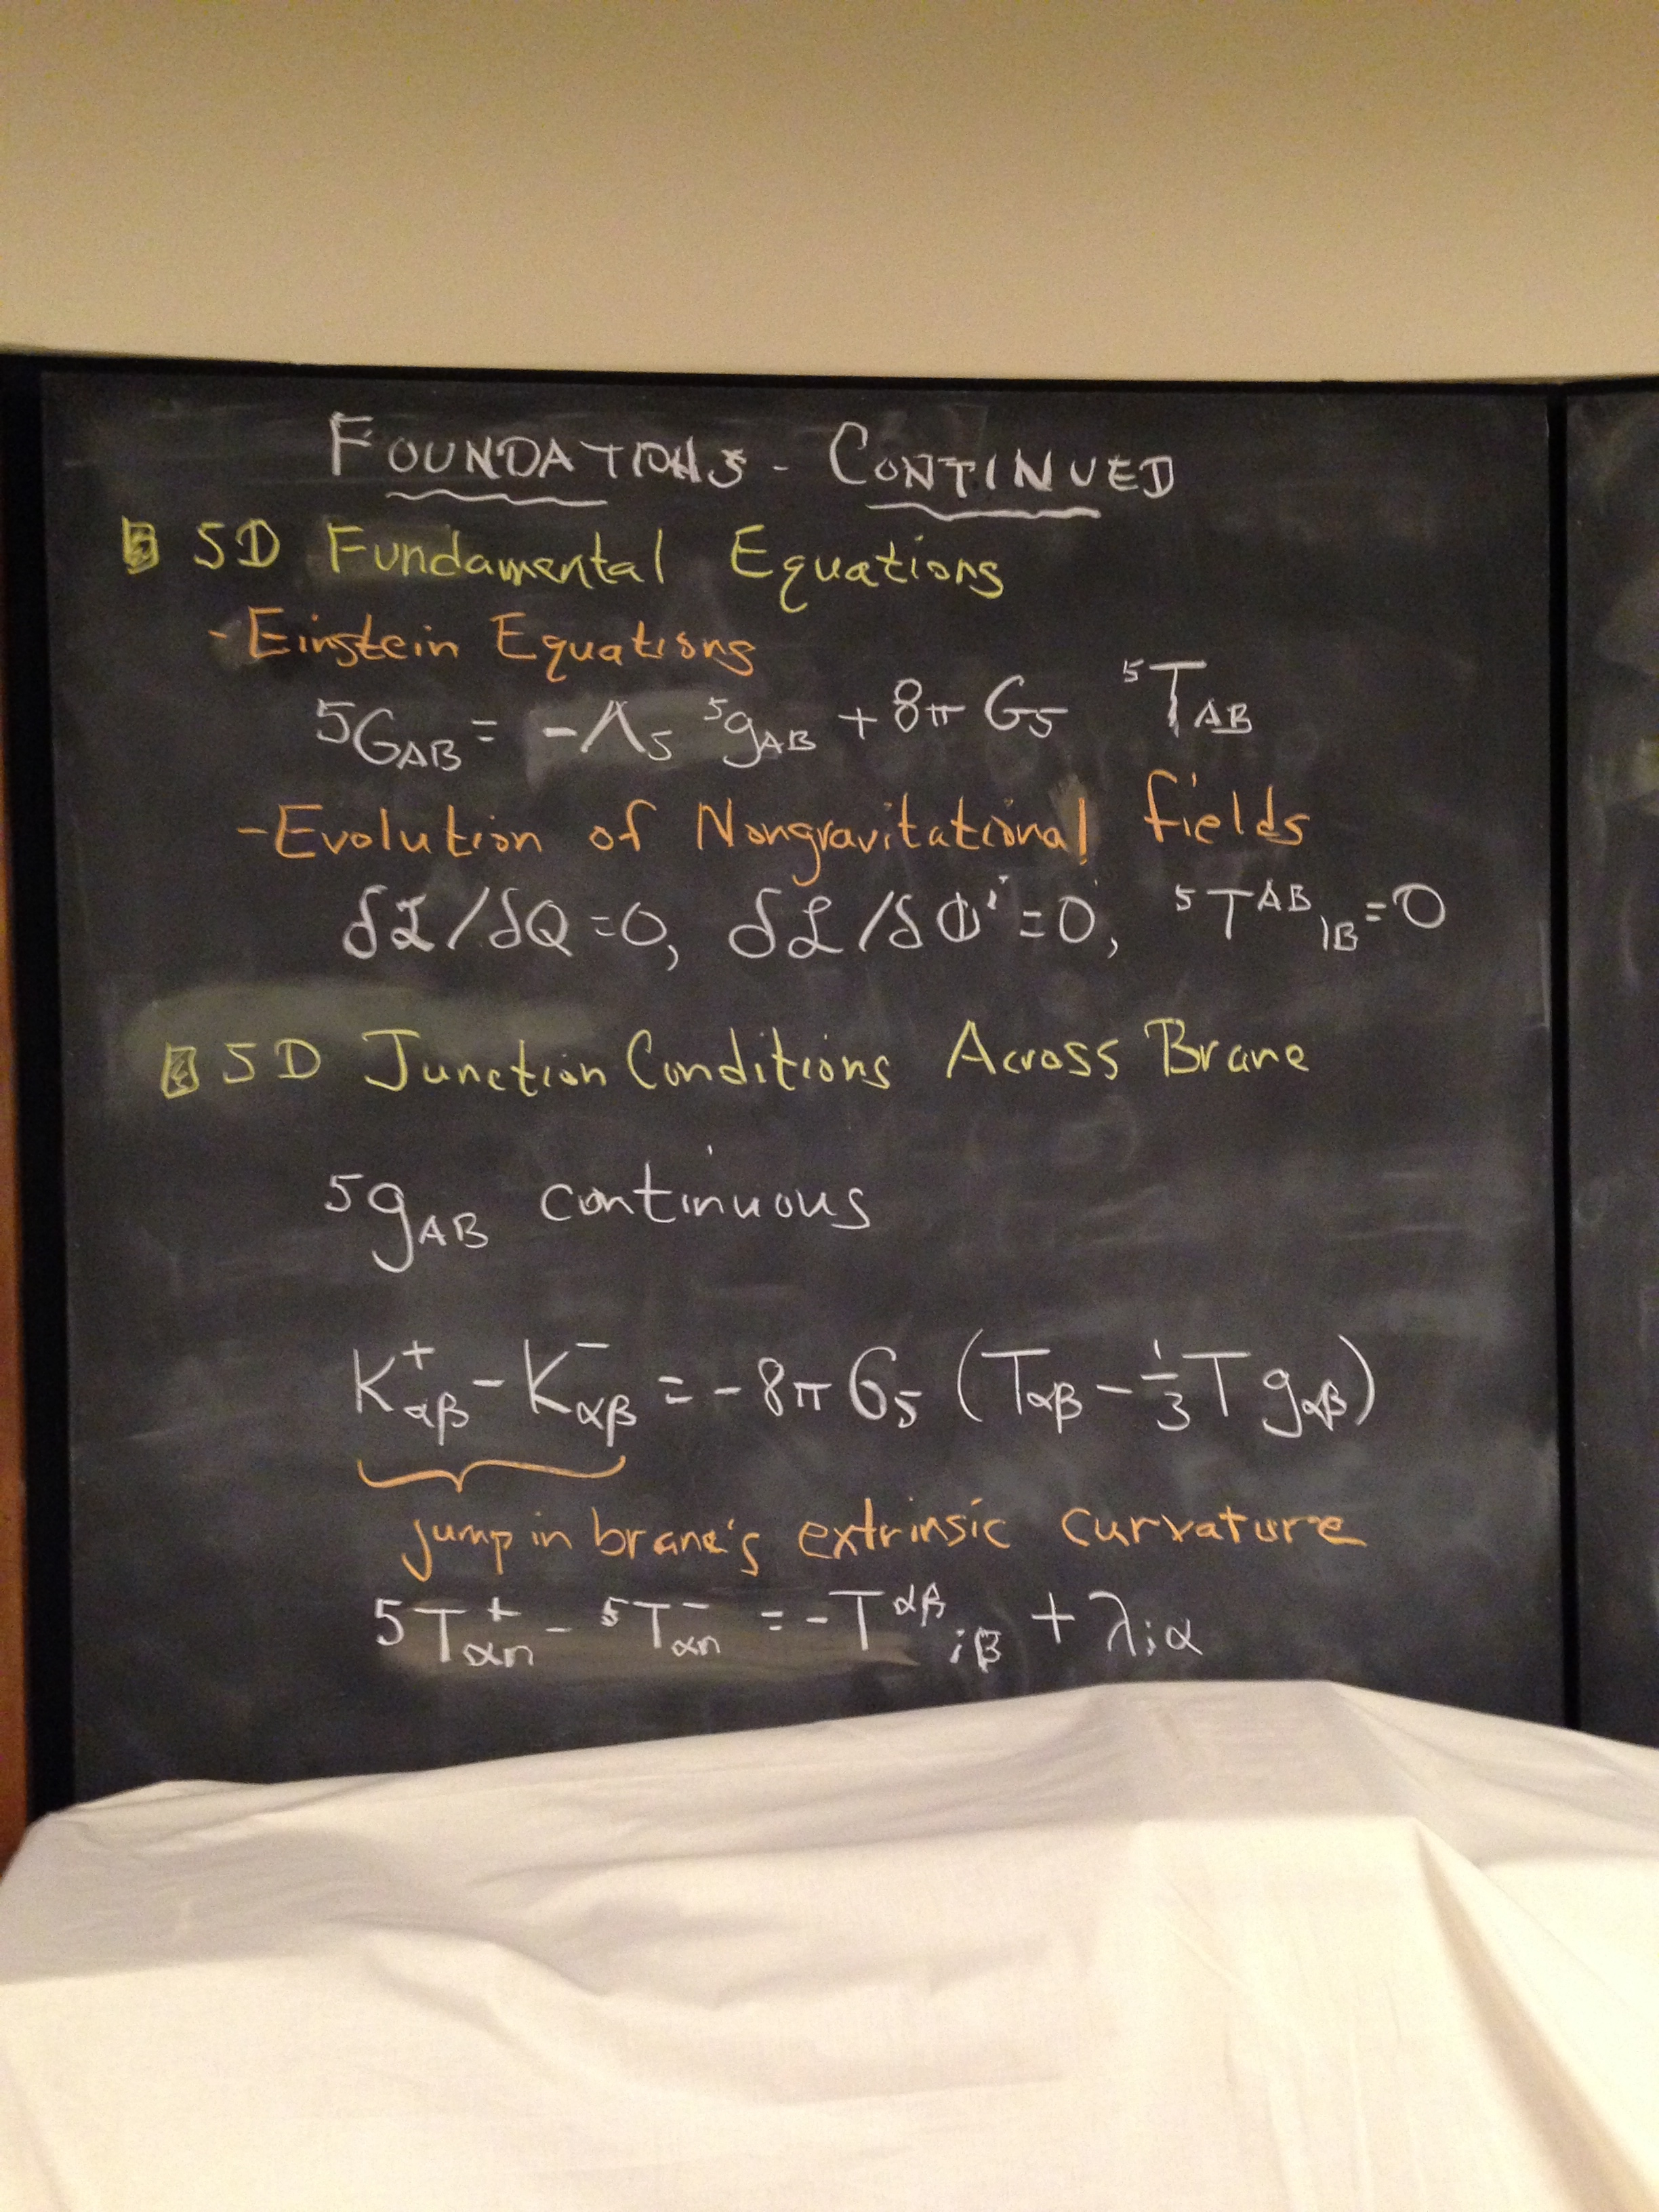 FOUNDATIONS - CONTINUED
5D Fundamental Equations
- Einstein Equations
⁵G_AB = -Λ₅ ⁵g_AB + 8π G₅ ⁵T_AB
- Evolution of Nongravitational fields
δℒ/δQ = 0, δℒ/δΦⁱ = 0, ⁵T^AB_|B = 0
5D Junction Conditions Across Brane
⁵g_AB continuous
K⁺_αβ - K⁻_αβ = -8π G₅ (T_αβ - 1/3 T g_αβ)
jump in brane's extrinsic curvature
⁵T⁺_αn - ⁵T⁻_αn = -T^αβ_;β + λ_;α